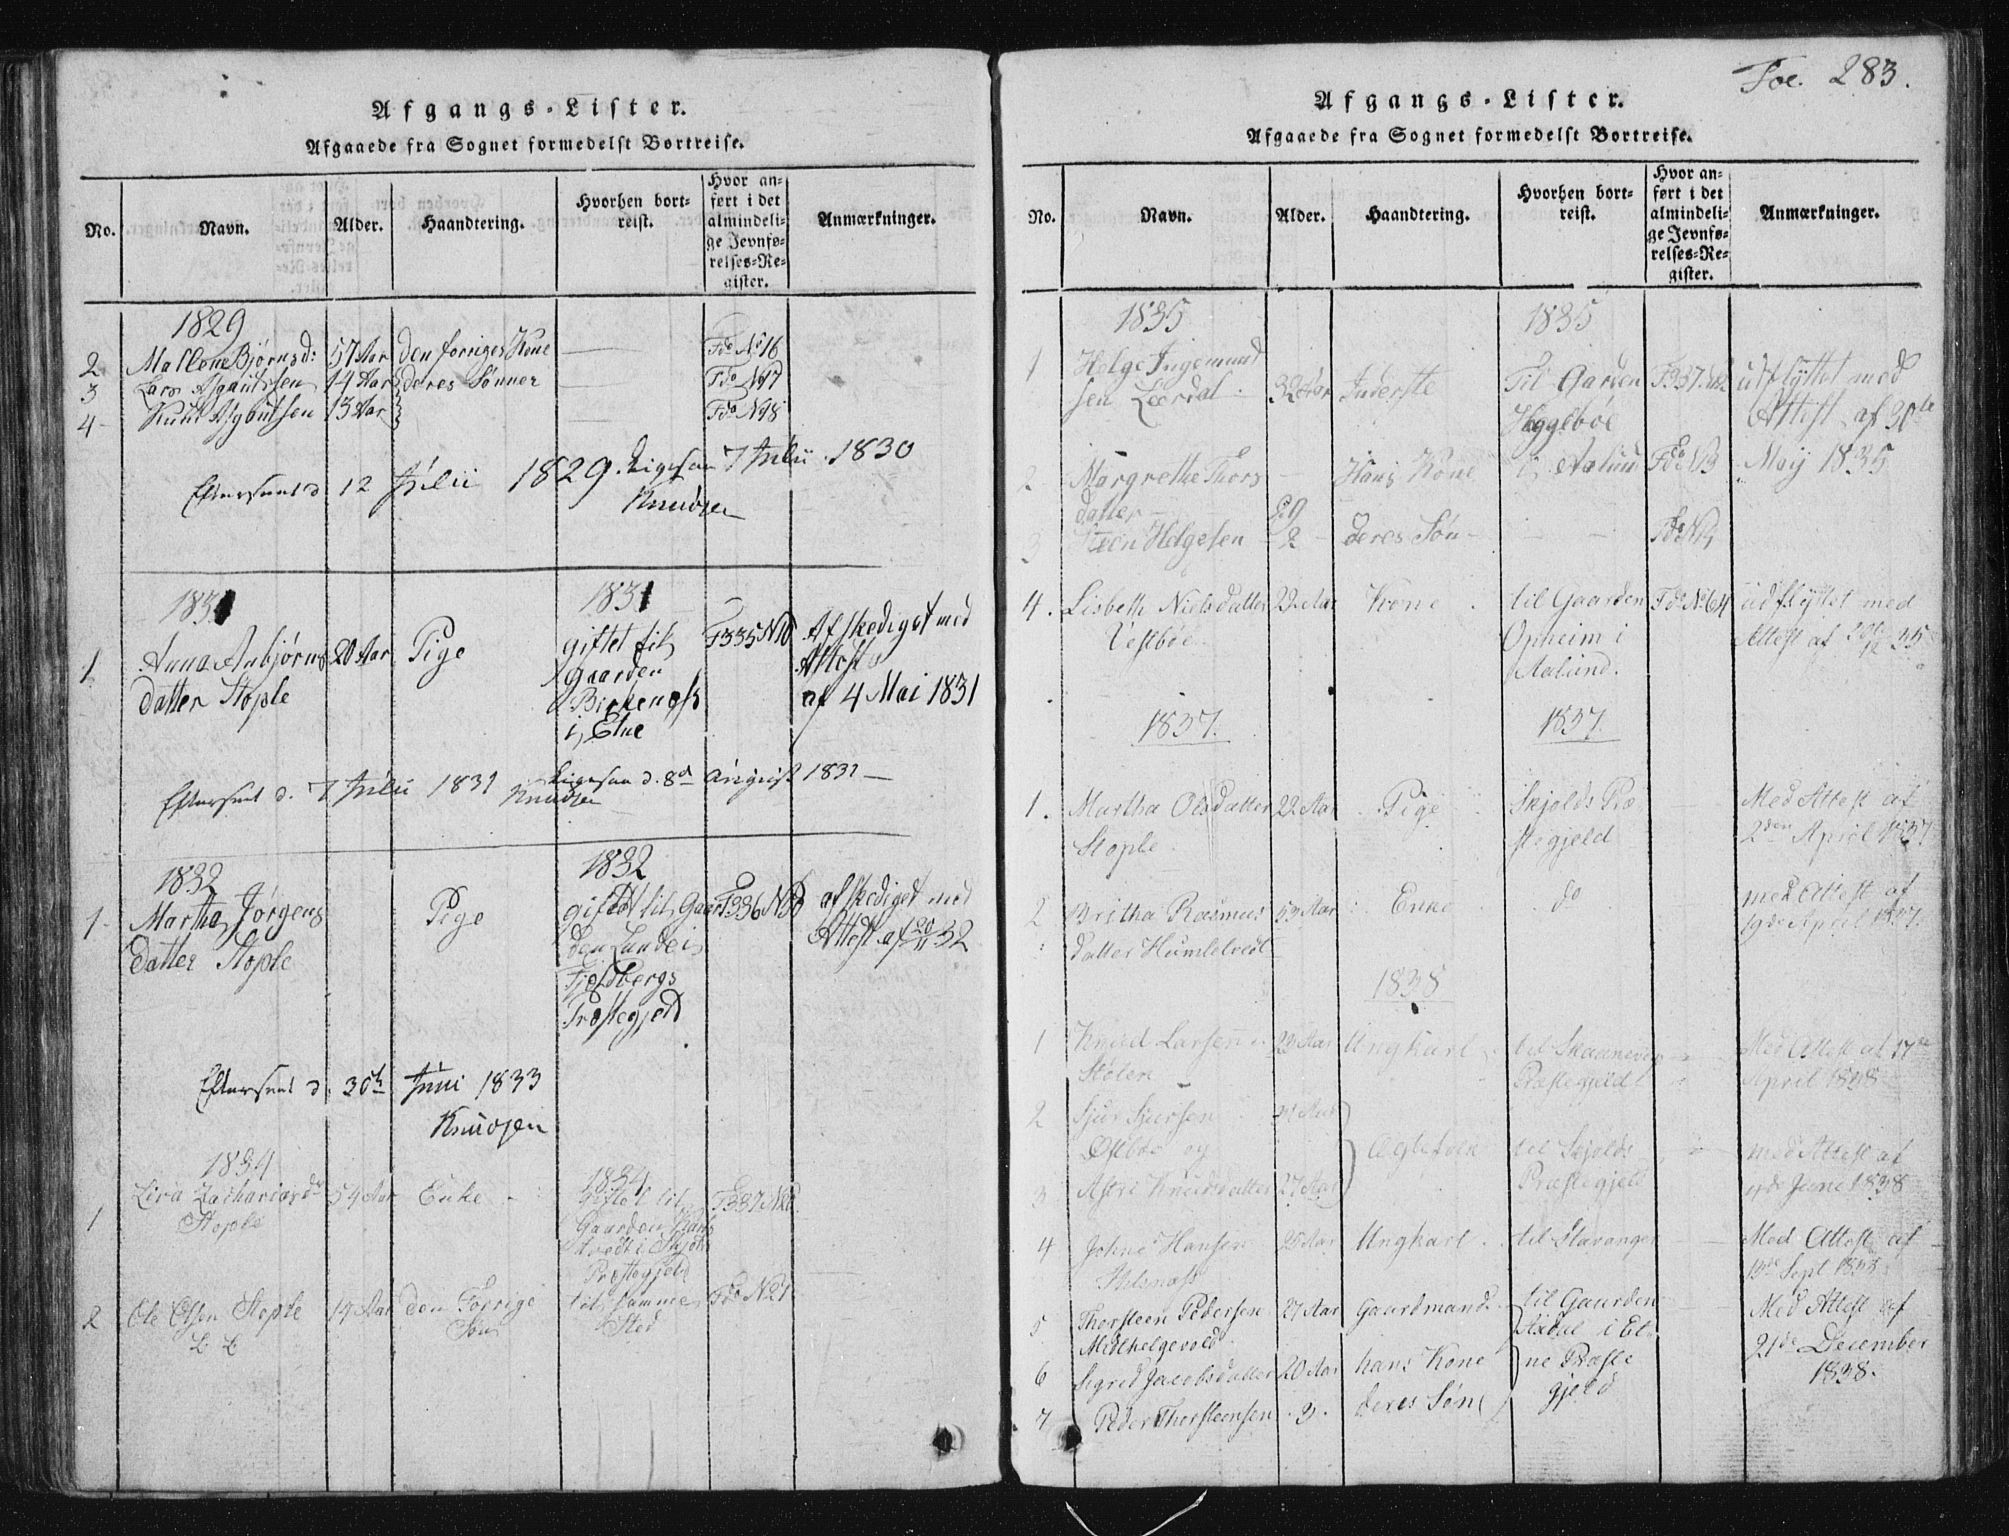 Afgangs-Lister.
Afgaaede fra Sognet formedelst Bortreise.
No. Navn. Alder. Haandtering. Hvorhen bortreist. Hvor anført i det almindelige Jevnførelses-Register. Anmærkninger.
1829
2 Mallene Bjørnsd: 57 Aar den forriges Kone Fdo No 16
3 Lars 14 Aar deres Sønner Fdo No 17
4 Knut 13 Aar Fdo No 18
Efterseet d 12 Julii 1829. Ligesaa 7 Julii 1830
Knudsen
1831 1831
1 Anna Anbjørns 20 Aar Pige giftet til F335 N10 Afskediget med
datter Stople Gaarden Attest
Birkenæss af 4 Mai 1831
i Etne
Efterseet d. 7 Julii 1831 Ligesaa d. 8d August 1831
Knudsen
1832 1832
1 Martha Jørgens Pige giftet til Gaar F336 afskediget med
datter Stople den Lunde i Attest af 32
Fjeldbergs
Præstegjeld
Efterseet d. 30te Juni 1833
Knudsen
1834 1834
1 Lisa Zachariasdr 54 Aar Enke Giftet til F337
Stople Gaarden
i Skjolds
Præstegjeld
2 Ole Olsen Stople 14 Aar den Forrige til samme Fdo No 21
Søn Sted
Foe. 283.
Afgangs-Lister.
Afgaaede fra Sognet formedelst Bortreise.
No. Navn. Alder. Haandtering. Hvorhen bortreist. Hvor anført i det almindelige Jevnførelses-Register. Anmærkninger.
1835 1835
1 Helge Ingemund Til Garden F337 udflyttet med
sen Leerdal 32 Aar Inderste Heggebøe Attest af 30te
2 Margrethe Thors Hans Kone i Aalund Maij 1835
datter 29
3 Helgesen 2 deres Søn
4. Lisbeth Nielsdatter 22 Aar Kone til Gaarden Fdo No 64 udflyttet med
Vestbøe Opheim i Attest af 35
Aalund.
1837. 1837.
1. Martha Olsdatter 22 Aar Pige Skjolds Præ Med Attest af
Stople stegjeld 2den April 1837
2 Britha Rasmus 53 Aar Enke do med Attest af
datter Humlelvedt 19de April 1837.
1838
1 Knud Larsen 23 Aar Ungkarl til Skaanevig Med Attest af 17de
Stølen Præstegjeld April 1838
2 Sjur Sjursen Aar
Østbøe og Ægtefolk til Skjolds med Attest af
3 Astri Knudsdatter 27 Aar Præstegjeld Juni 1838
4 Johne Hansen Aar Ungkarl til Stavanger Med Attest af
Sept
5 Thorsteen Pedersen 27 Aar Gaardmand til Gaarden Med Attest af
Midthelgevold i Et 21de December
6 Sigrid Jacobsdatter 20 Aar hans Kone ne Præste 1838.
7 Peder Thorsteensen 3 deres Søn gjeld